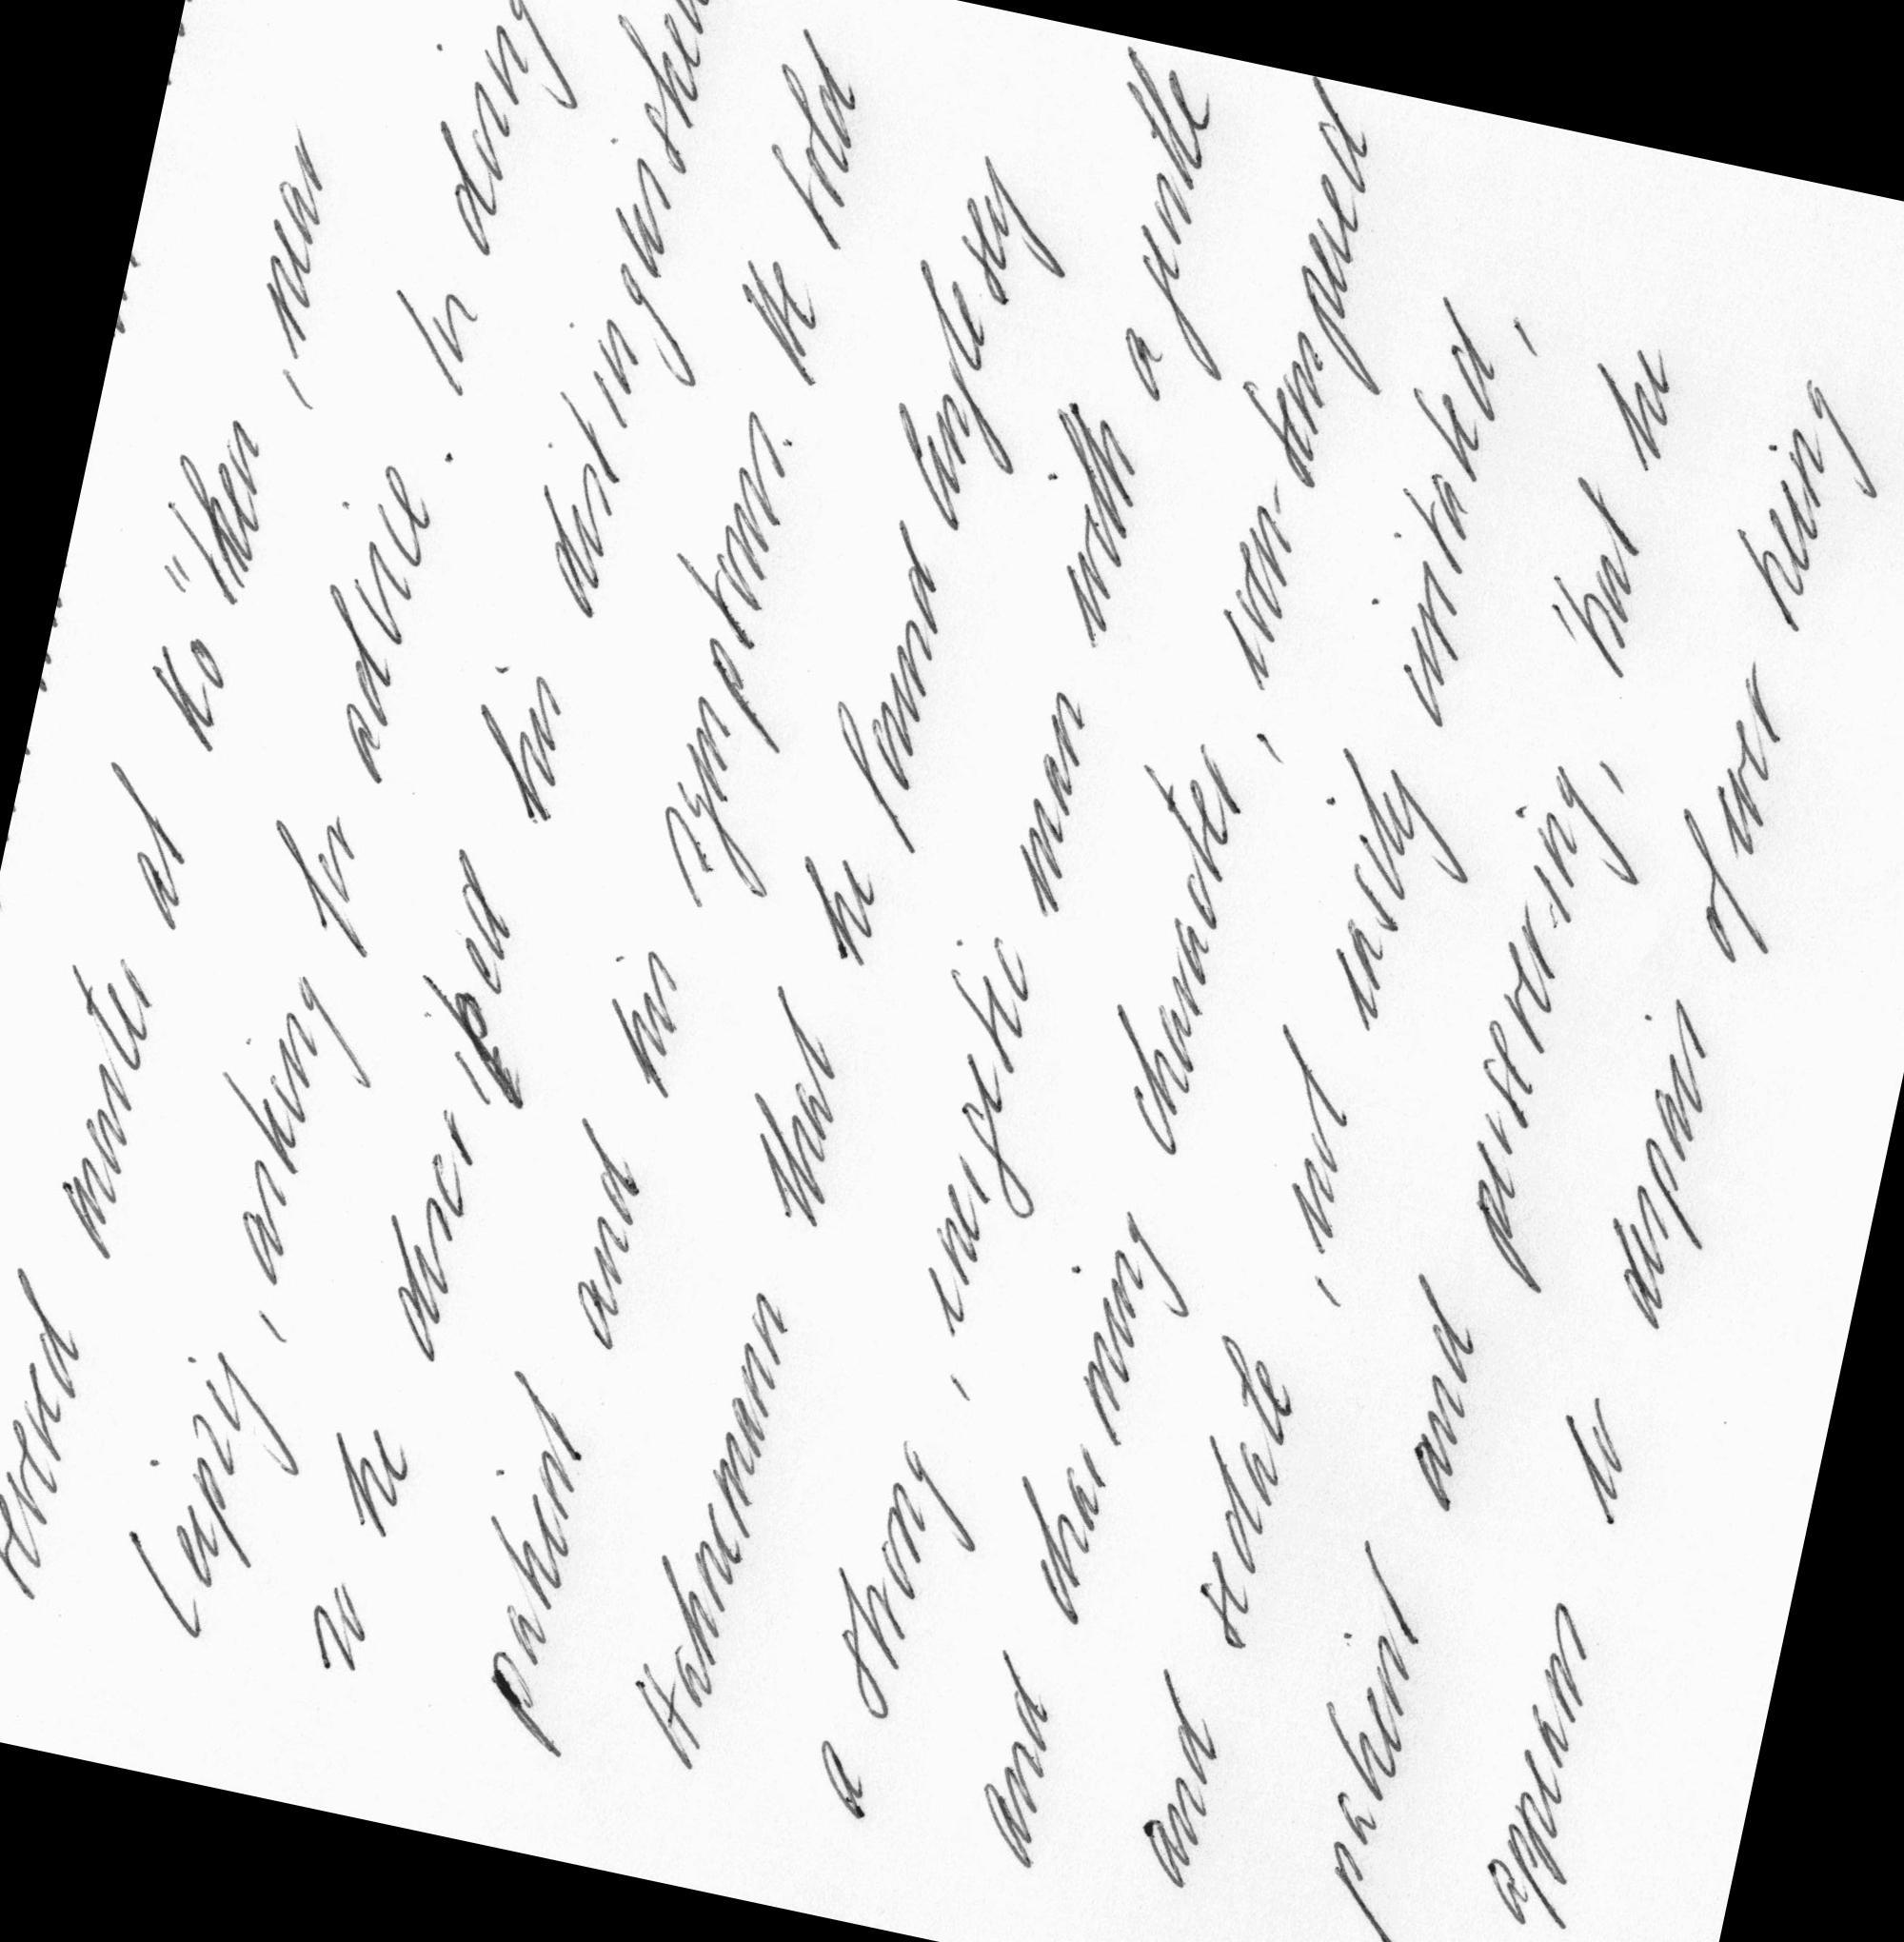 revered master at Köthen, near
Leipzig, asking for advice. In doing
so he described his distinguished
patient and his symptoms. He told
Hahnemann that he found Anglesey
a strong, energetic man with a gentle
and charming character, even-tempered
and sedate, not easily irritated,
patient and persevering, but he
appears to despair of ever being